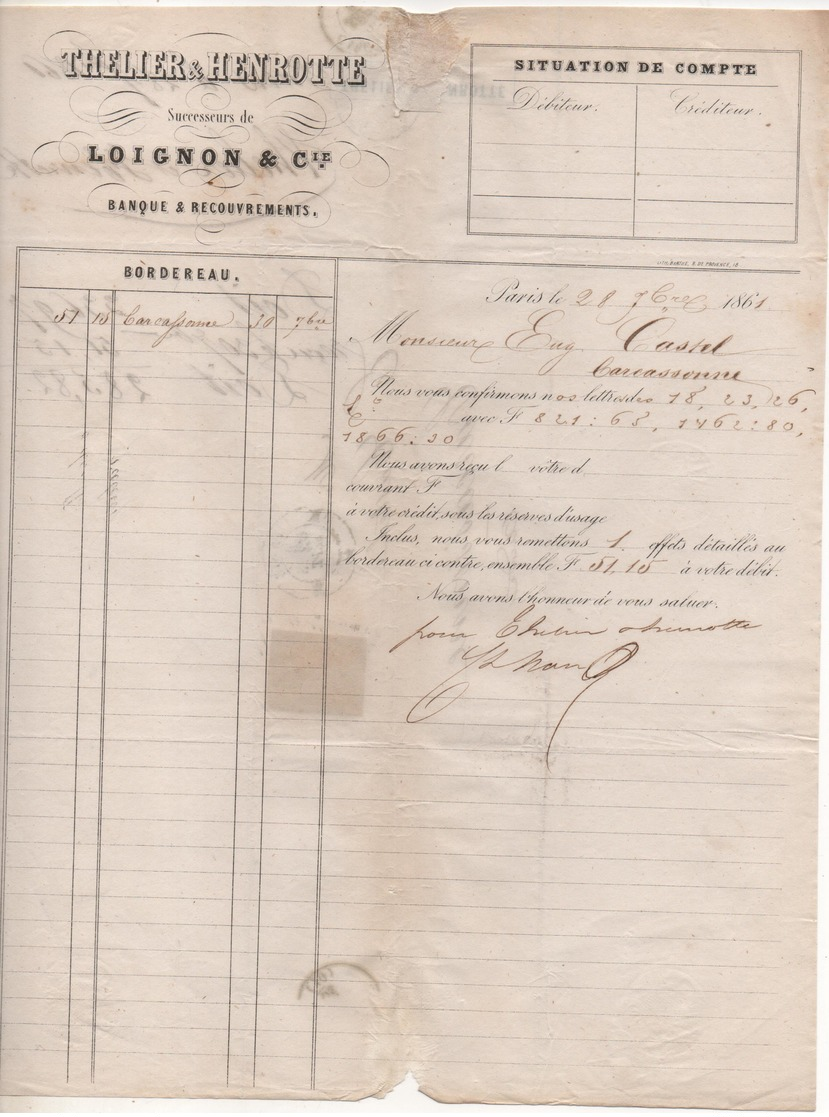 THELIER & HENROTTE
Successeurs de
LOIGNON & CIE.
BANQUE & RECOUVREMENTS.
SITUATION DE COMPTE
Débiteur. Créditeur.
BORDEREAU.
51 15 Carcassonne 30 7bre
Paris le 28 7bre 1861
Monsieur Eug Castel
Carcassonne
Nous vous confirmons nos lettres des 18, 23, 26,
ct avec F 821:65, 1462:80,
1866:30
Nous avons reçu l vôtre d
couvrant F
à votre crédit, sous les réserves d'usage
Inclus, nous vous remettons 1 effets détaillés au
bordereau ci contre, ensemble F 51,15 à votre débit.
Nous avons l'honneur de vous saluer.
pour Thelier & Henrotte